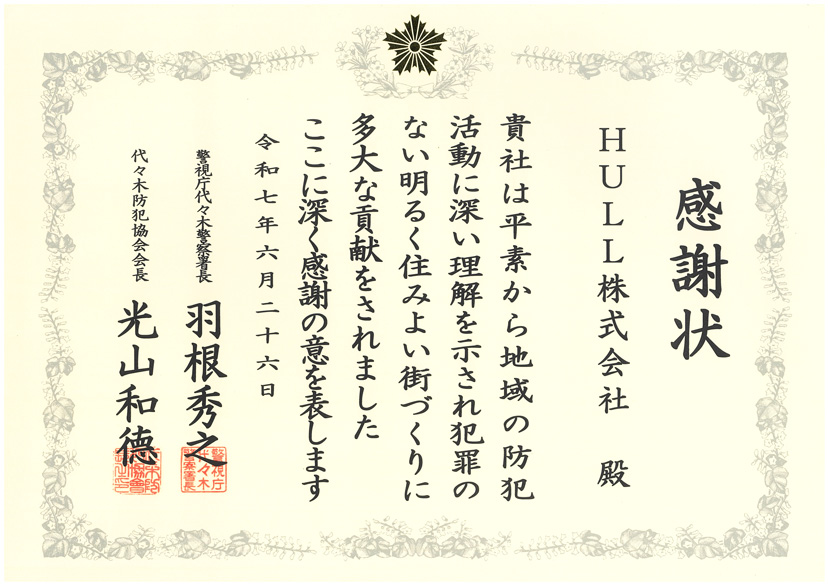 感謝状
HULL株式会社 殿
貴社は平素から地域の防犯
活動に深い理解を示され犯罪の
ない明るく住みよい街づくりに
多大な貢献をされました
ここに深く感謝の意を表します
令和七年六月二十六日
警視庁代々木警察署長 羽根秀之
警視庁
代々木
警察署長
代々木防犯協会会長 光山和德